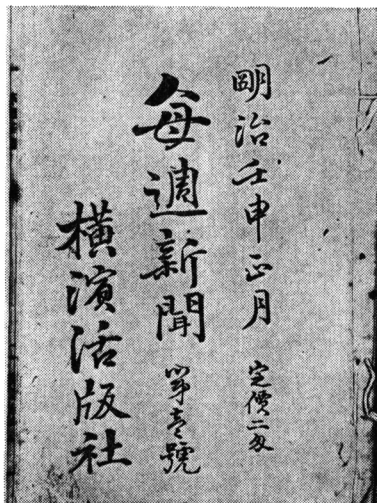 明治壬申正月 定價二匁
每週新聞 第壱號
橫濱活版社